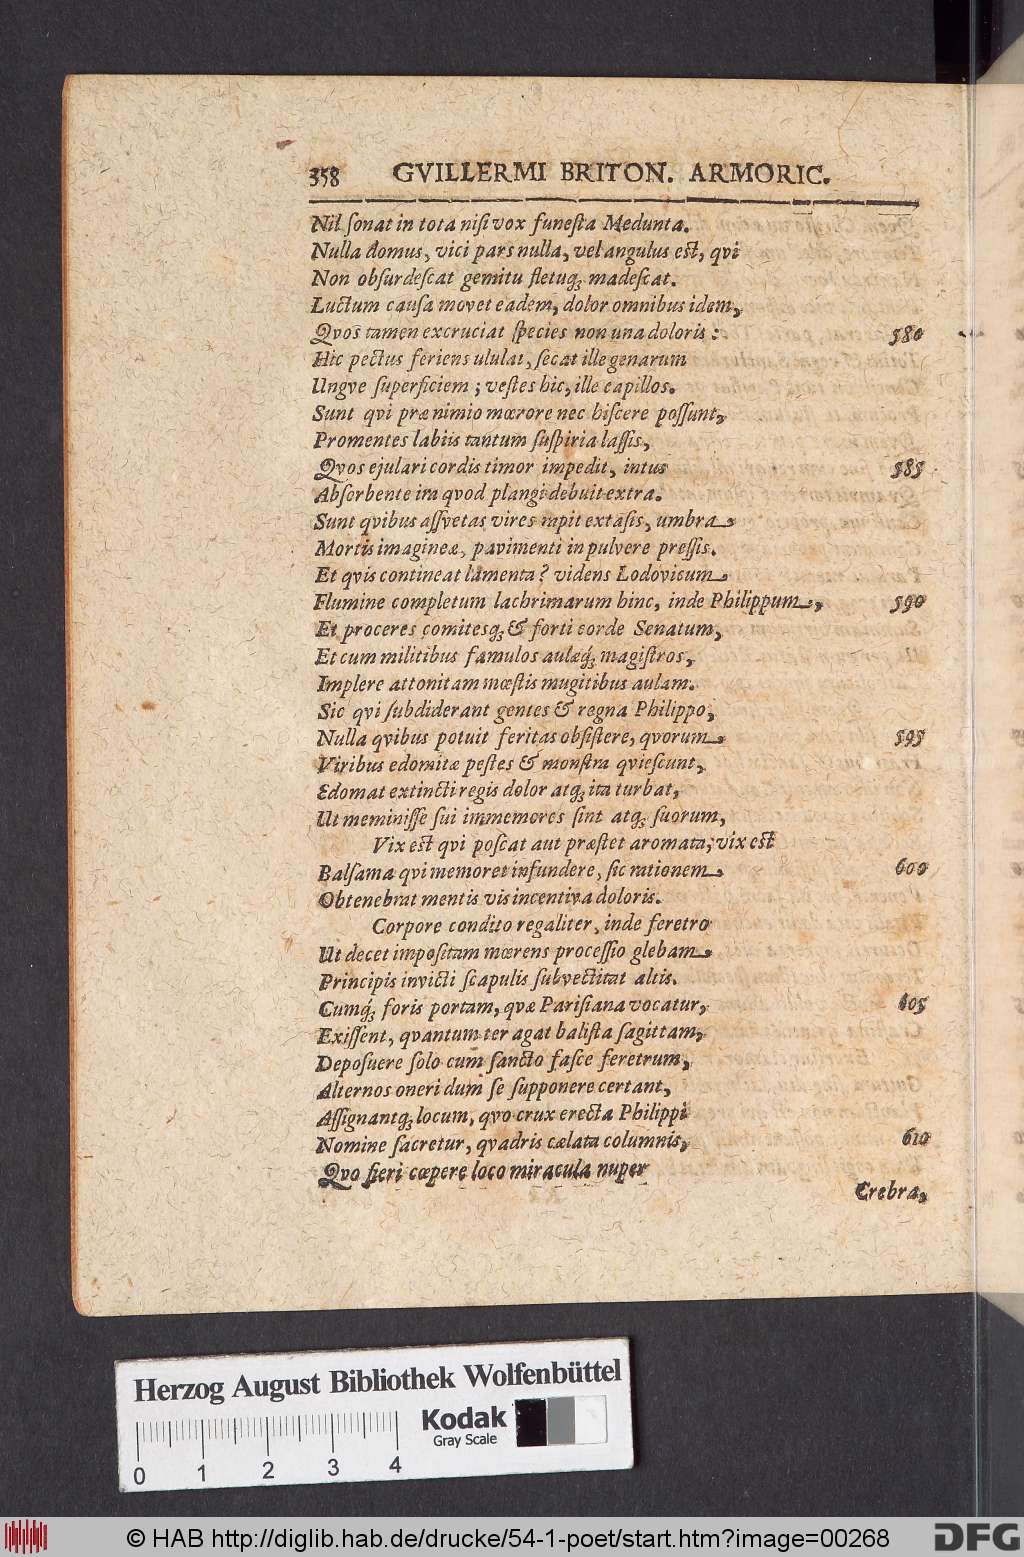 358 GVILLERMI BRITON. ARMORIC.
Nil ſonat in tota niſi vox funeſta Medunta.
Nulla domus, vici pars nulla, vel angulus est, qvi
Non obſurdeſcat gemitu fletuq; madeſcat.
Luctum cauſa movet eadem, dolor omnibus idem,
Qvos tamen excruciat ſpecies non una doloris: 580
Hic pectus feriens ululat, ſecat ille genarum
Ungve ſuperficiem; veſtes hic, ille capillos.
Sunt qvi præ nimio mœrore nec hiſcere poſſunt,
Promentes labiis tantum ſuſpiria laſſis,
Qvos ejulari cordis timor impedit, intus 585
Abſorbente ira qvod plangi debuit extra.
Sunt qvibus aſſvetas vires rapit extaſis, umbra
Mortis imagineæ, pavimenti in pulvere preſſis.
Et qvis contineat lamenta? videns Lodovicum
Flumine completum lachrimarum hinc, inde Philippum, 590
Et proceres comitesq; & forti corde Senatum,
Et cum militibus famulos aulæq́; magiſtros,
Implere attonitam mœſtis mugitibus aulam.
Sic qvi ſubdiderant gentes & regna Philippo,
Nulla qvibus potuit feritas obſiſtere, qvorum 595
Viribus edomitæ peſtes & monſtra qvieſcunt,
Edomat extincti regis dolor atq; ita turbat,
Ut meminiſſe ſui immemores ſint atq; ſuorum,
Vix est qvi poſcat aut præſtet aromata, vix est
Balſama qvi memoret infundere, ſic rationem 600
Obtenebrat mentis vis incentiva doloris.
Corpore condito regaliter, inde feretro
Ut decet impoſitam mœrens proceſſio glebam
Principis invicti ſcapulis ſubvectitat altis.
Cumq́; foris portam, qvæ Pariſiana vocatur, 605
Exiſſent, qvantum ter agat baliſta ſagittam,
Depoſuere ſolo cum ſancto faſce feretrum,
Alternos oneri dum ſe ſupponere certant,
Aſſignantq; locum, qvo crux erecta Philippi
Nomine ſacretur, qvadris cælata columnis, 610
Qvo fieri cœpere loco miracula nuper
Crebra,
Herzog August Bibliothek Wolfenbüttel
Kodak
Gray Scale
0 1 2 3 4
© HAB http://diglib.hab.de/drucke/54-1-poet/start.htm?image=00268
DFG